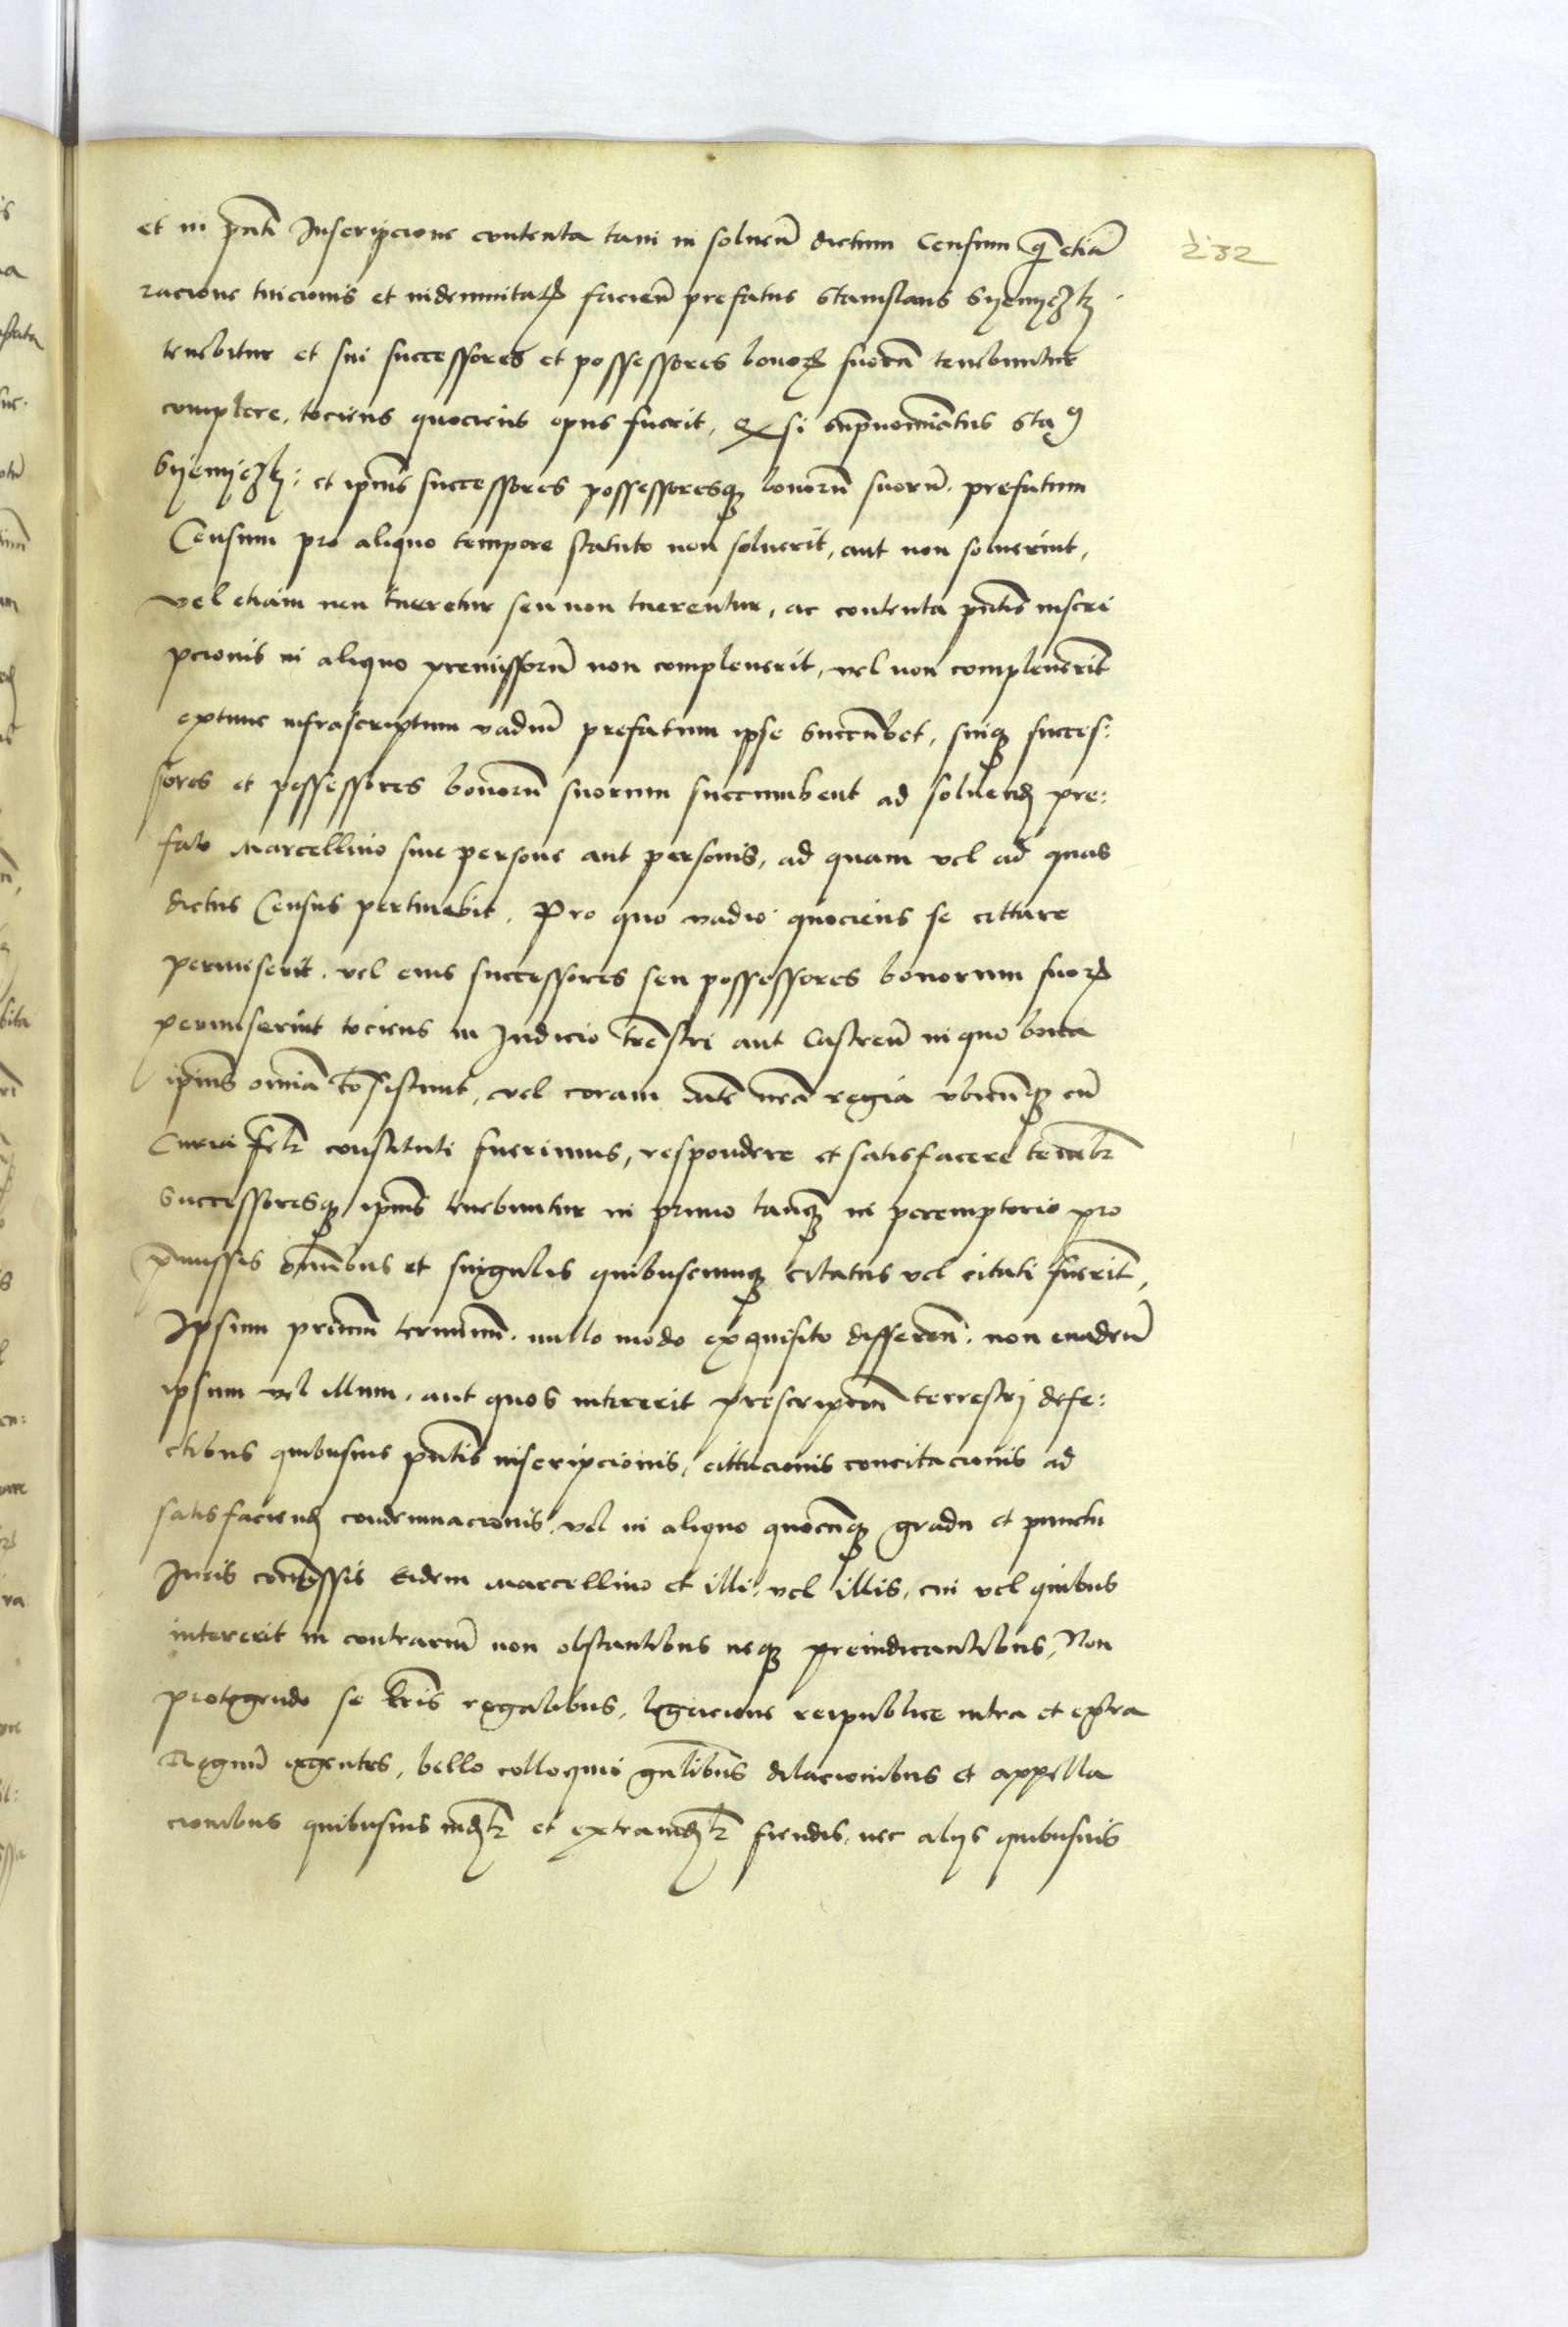 et in pñti Inscripcione contenta tam in soluen̄ dictum Censum q̃ etiã
racione tuicionis et indemnitaꝝ facien̄ prefatus Stanislaus
tenebitur et sui successores et possessores bonoꝝ suorũ tenebuntur
complere, tociens quociens opus fuerit, Et si suꝑnominatus Sta9
et ip̄ius successores possessoresqꝫ bonorũ suorũ prefatum
Censum pro aliquo tempore statuto non soluerit, aut non soluerint,
vel etiam non tueretur seu non tuerentur, ac contenta pñtis inscri
pcionis in aliquo premissorũ non compleuerit, vel non compleuerint
extunc infrascriptum vadiũ prefatum ipse Succũbet, suiqꝫ succes:
sores et possessores bonorũ suorum succumbent ad soluend pre:
fato Marcellino siue persone aut personis, ad quam vel ad quas
dictus Census pertinebit. Pro quo vadio quociens se cittare
permiserit. vel eius successores seu possessores bonorum suoꝝ
permiserint tociens in Judicio tr̃estri aut Castren̄ in quo bona
ip̄ius omnia consistunt, vel coram nr̃a regia vbicũqꝫ cũ
Curia constituti fuerimus, respondere et satisfacere tenebr̃
Successoresqꝫ ip̄ius tenebuntur in primo tanqꝫ in peremptorio pro
p̃missis oĩnibus et singulis quibuscunqꝫ citatus vel citati fuerint,
Ipsum primum terminum. nullo modo exquisito differen̄. non euaden̄
ipsum vel illum. aut quos intererit prescripcõn̄ terrestrj defe:
ctibus quibusuis pñtis inscripcionis, cittacionis concitacionis ad
satisfaciend condemnacionis, vel in aliquo quocũqꝫ gradu et punctu
Juris Eidem Marcellino et illi. vel illis, cui vel quibus
intererit in contrariũ non obstantibus neqꝫ preiudicantibus, Non
protegendo se lr̃is regalibus, legacione reipublice intra et extra
Regnũ egentes, bello colloquio gñalibus dilacionibus et appella
cionibus quibusuis et fiendis, nec alijs quibusuis
232